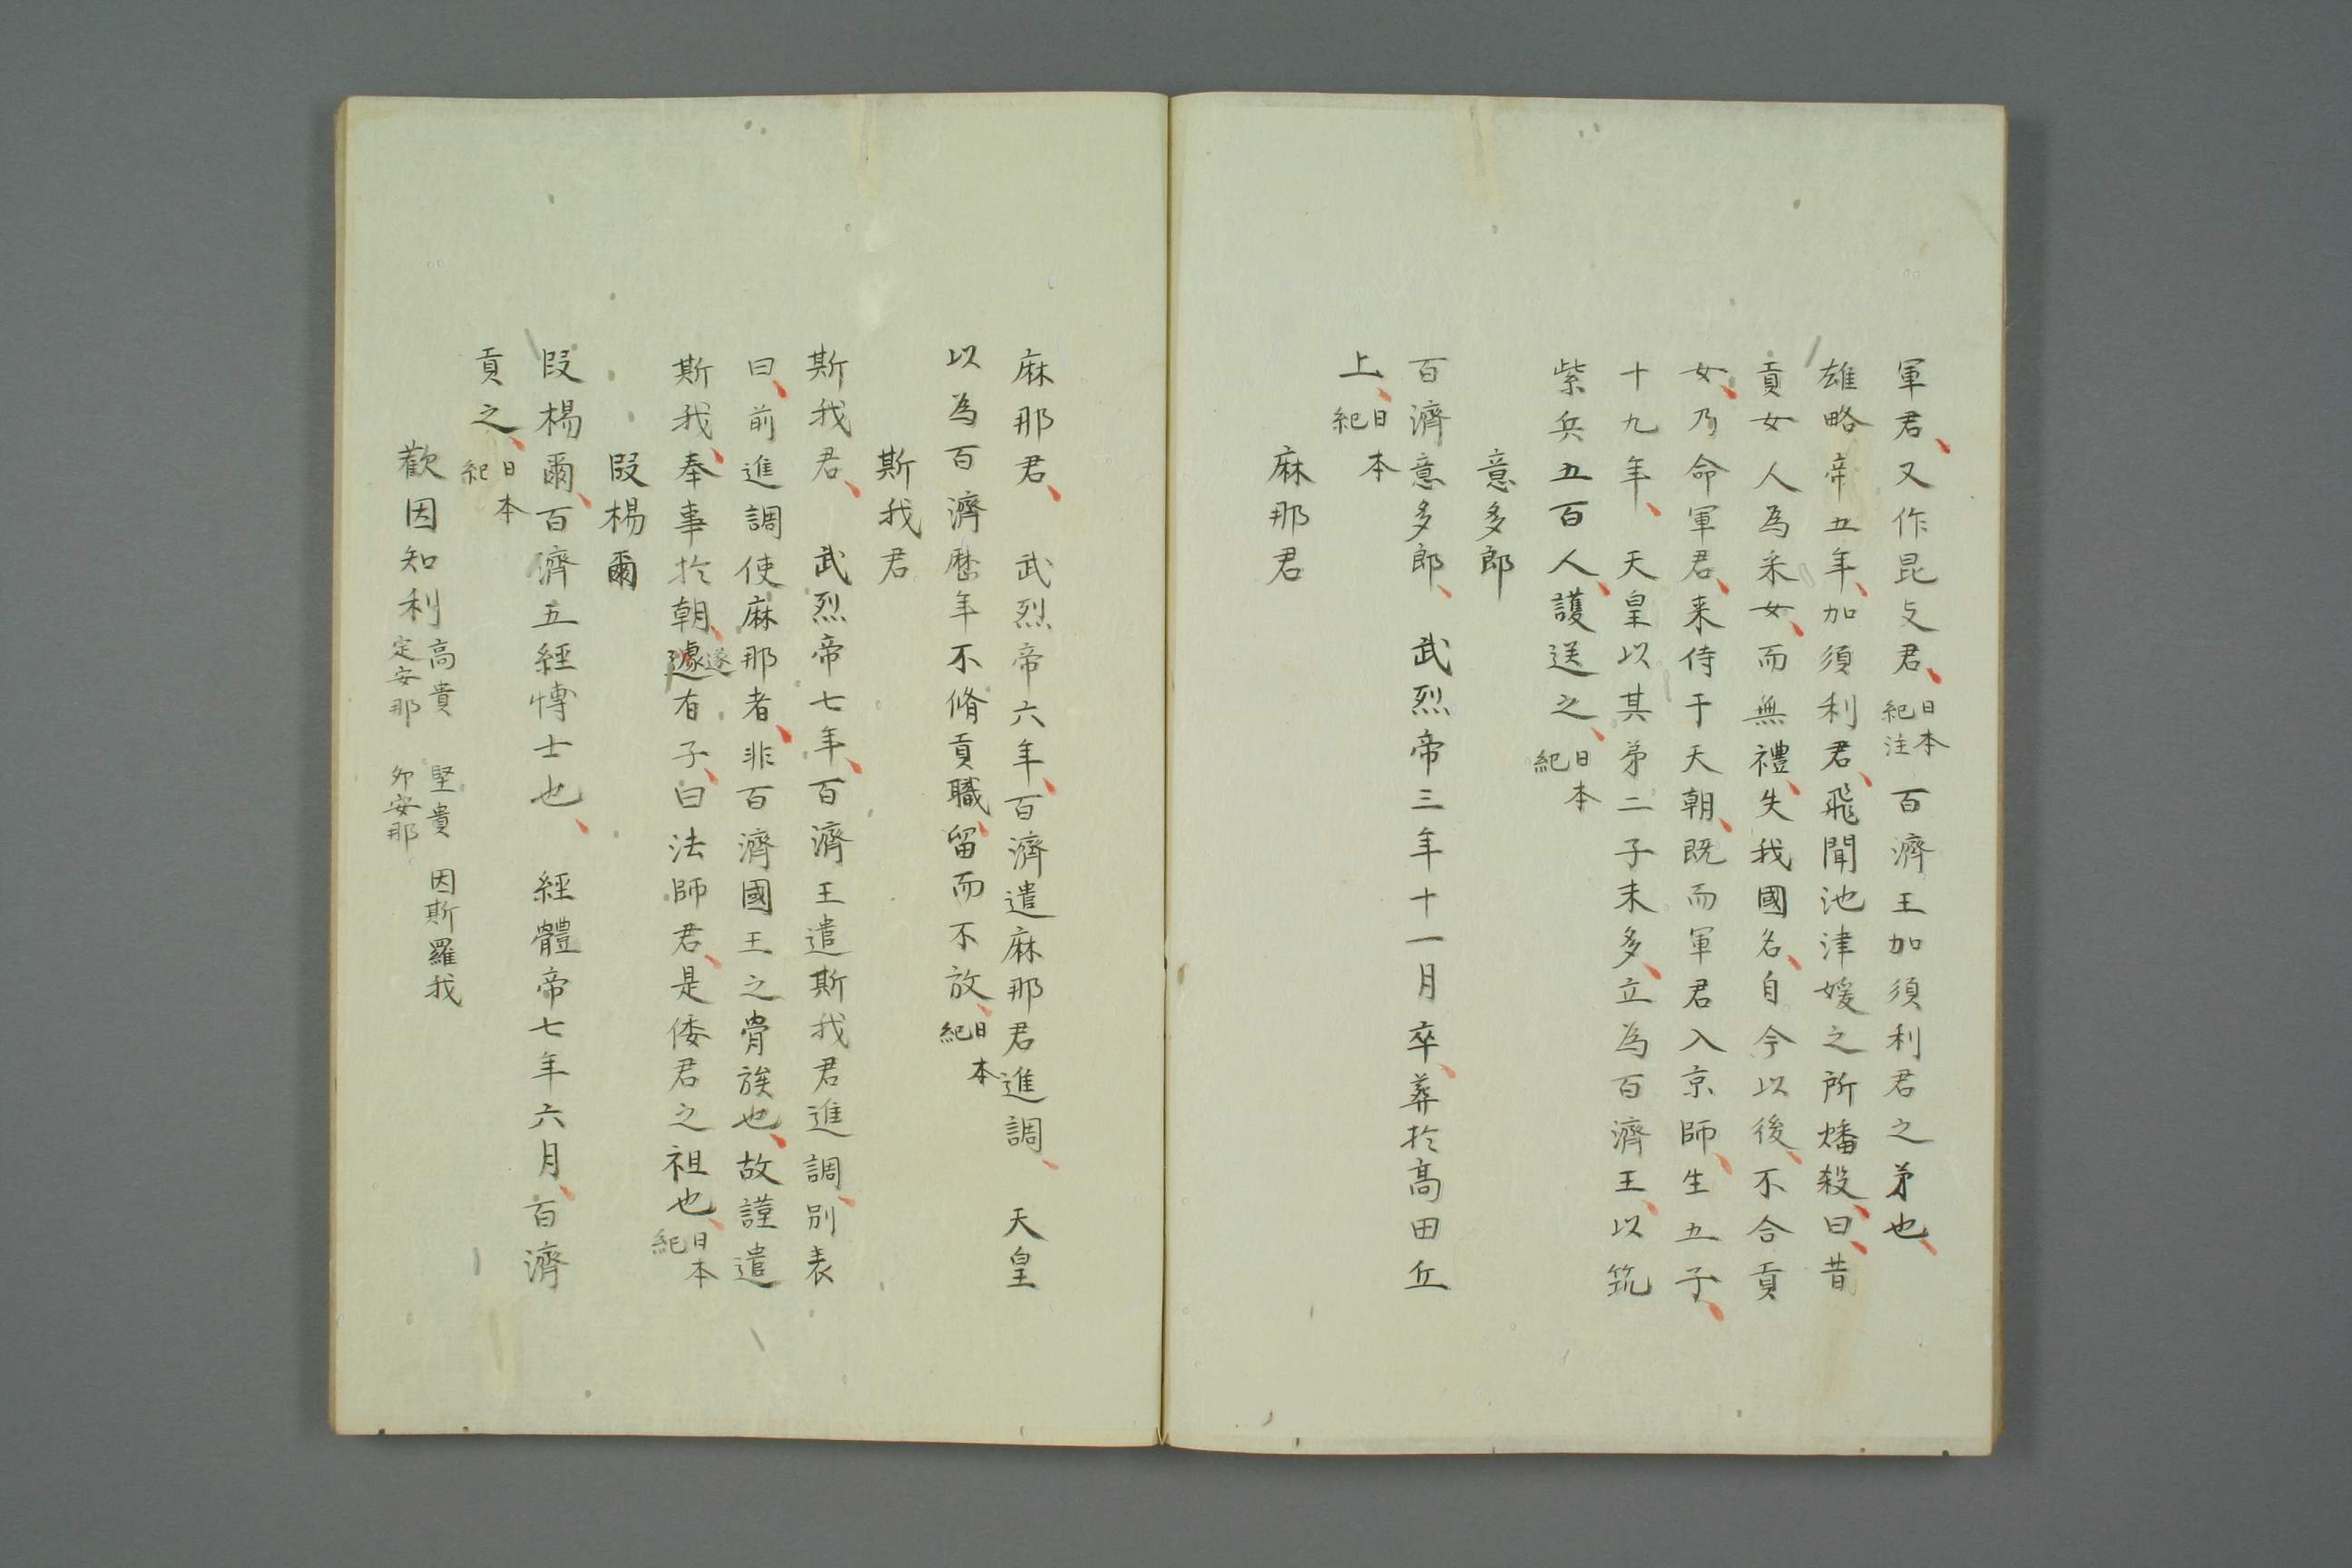 軍君、又作昆支君、日本紀注百濟王加須利君之弟也、
雄略帝五年、加須利君、飛聞池津媛之所燔殺、曰、昔
貢女人為采女、而無禮、失我國名、自今以後、不合貢
女、乃命軍君、来侍于天朝、既而軍君入京師、生五子、
十九年、天皇以其弟二子末多、立為百濟王、以筑
紫兵五百人、護送之、日本紀
意多郎
百濟意多郎、武烈帝三年十一月卒、葬於高田丘
上、日本紀
麻那君
麻那君、武烈帝六年、百濟遣麻那君進調、天皇
以為百濟歷年不脩貢職、留而不放、日本紀
斯我君
斯我君、武烈帝七年、百濟王遣斯我君進調、別表
曰、前進調使麻那者、非百濟國王之骨族也、故謹遣
斯我、奉事於朝、遽遂有子、曰法師君、是倭君之祖也、日本紀
段楊爾
段楊爾、百濟五經博士也、經體帝七年六月、百濟
貢之、日本紀
歡因知利 高貴 定安那 堅貴 卯安那 因斯羅我